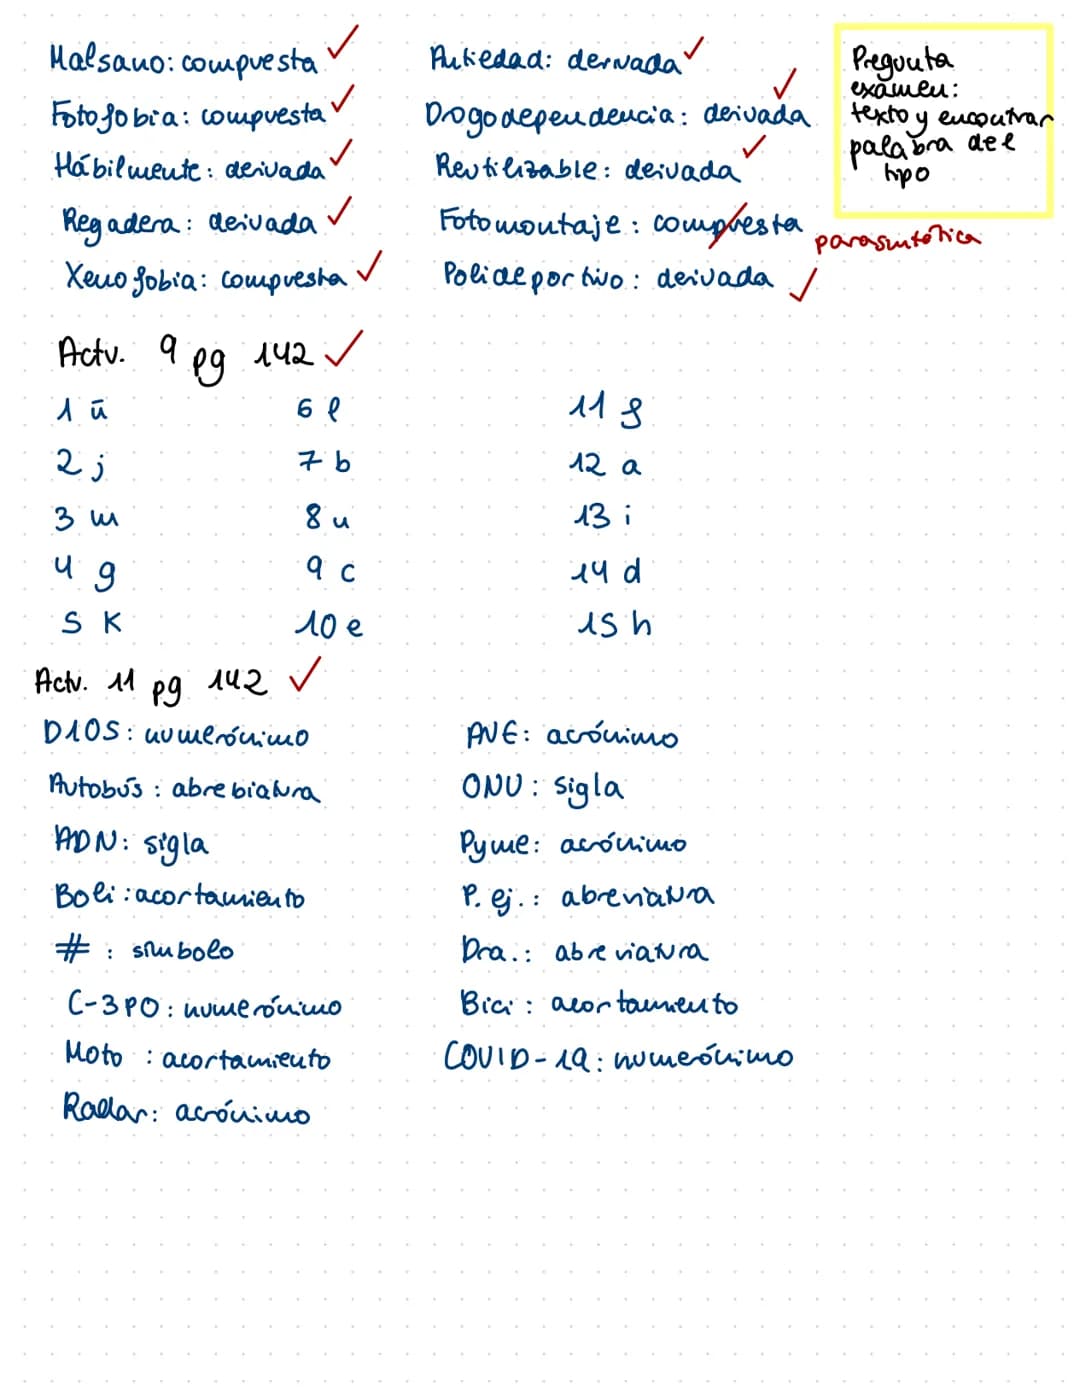 Malsano: compuesta ✓
Fotofobia: compuesta ✓
Hábilmente: derivada ✓
Regadera: derivada ✓
Xenofobia: compuesta ✓
Antiedad: derivada ✓
Drogodependencia: derivada ✓
Reutilizable: derivada ✓
Fotomontaje: compuesta parasintética
Polideportivo: derivada ✓
Pregunta
examen:
texto y encontrar
palabra del
tipo
Actv. 9 pg 142 ✓
1 ñ
2 j
3 m
4 g
5 K
6 l
7 b
8 n
9 c
10 e
11 f
12 a
13 i
14 d
15 h
Actv. 11 pg 142 ✓
D10S: numerónimo
Autobús: abrebiatura
ADN: sigla
Boli: acortamiento
#: símbolo
C-3PO: numerónimo
Moto: acortamiento
Radar: acrónimo
AVE: acrónimo
ONU: sigla
Pyme: acrónimo
P. ej.: abreviatura
Dra.: abreviatura
Bici: acortamiento
COVID-19: numerónimo